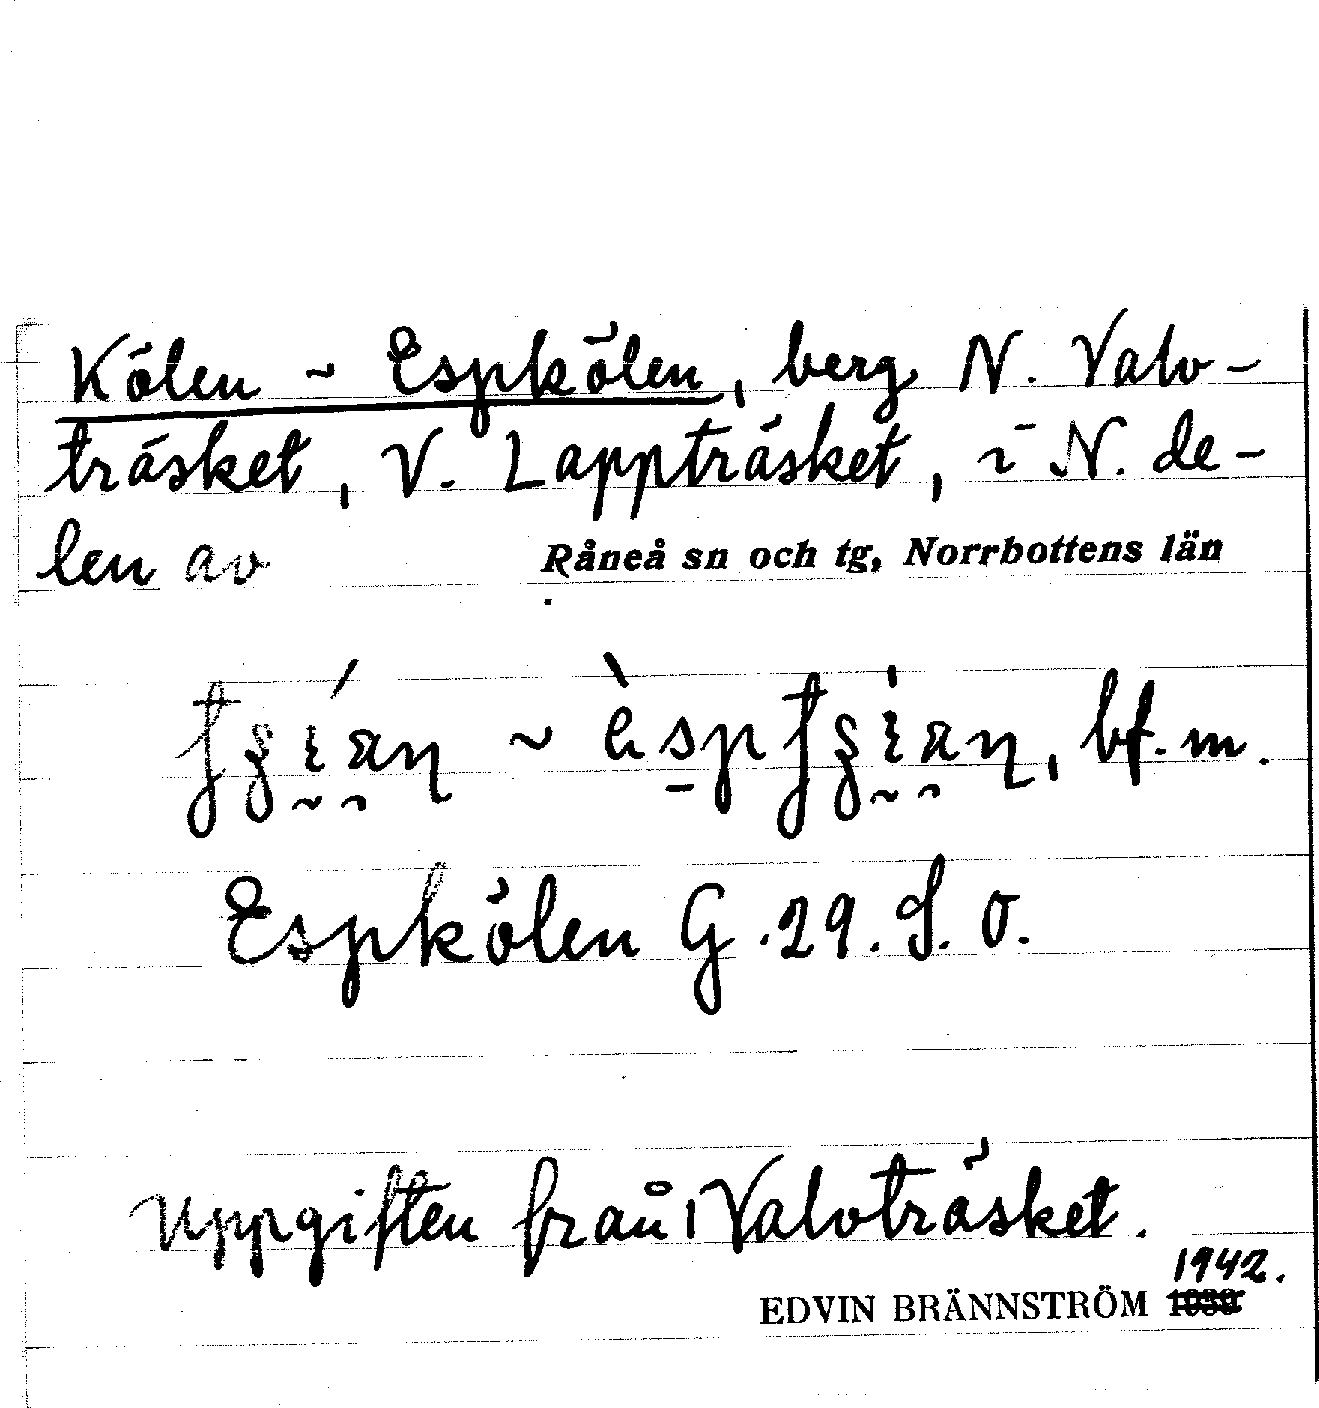 Kölen ~ Espkölen, berg N. Valv-
träsket, V. Lappträsket, i N. de-
len av Råneå sn och tg, Norrbottens län
bf. m.
Espkölen G. 29. S. O.
Uppgiften från Valvträsket.
1942.
EDVIN BRÄNNSTRÖM 1939